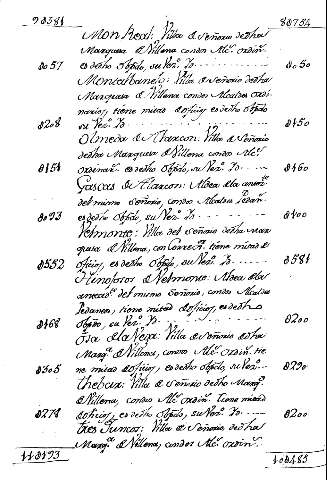 Mon Real: Villa de Señorio de dha
Marquesa de Villena con dos Alc. ordin.
es de dho Obpdo, su Vez. Yo
8057 8050
Montalbanejo: Villa de Señorio de dha
Marquesa de Villena con dos Alcaldes ordi
narios, tiene mitad de oficios, es de dho Obpdo
su Vez. Yo
8208 8150
Olmeda de Alarcon: Villa de Señorio
de dha Marquesa de Villena con dos Alc.
ordinar. es de dho Obpdo, su Vez. Yo
8154 8160
Gascas de Alarcon: Aldea
del mismo Señorio, con dos Alcaldes Pedan.
es de dho Obpdo, su Vez. Yo
8093 8100
Velmonte: Villa del Señorio de dha Mar
quesa de Villena, con tiene mitad de
oficios, es de dho Obpdo, su Vez. Yo
8552 8581
Hinojosos de Velmonte: Aldea de la
del mismo Señorio, con dos Alcaldes
Pedaneos, tiene mitad de oficios, es de dho
Obpdo, su Vez. Yo
8168 8200
Osa de la Vega: Villa de Señorio de dha
Marq. de Villena, con dos Alc. ordin. tie
ne mitad de oficios, es de dho Obpdo, su Vez.
8305 8290
Villa de Señorio de dho Marq.
de Villena, con dos Alc. ordin. tiene mitad
de oficios, es de dho Obpdo, su Vez. Yo
8274 8200
tres Juncos: Villa de Señorio de dha
Marq. de Villena, con dos Alc. ordin.